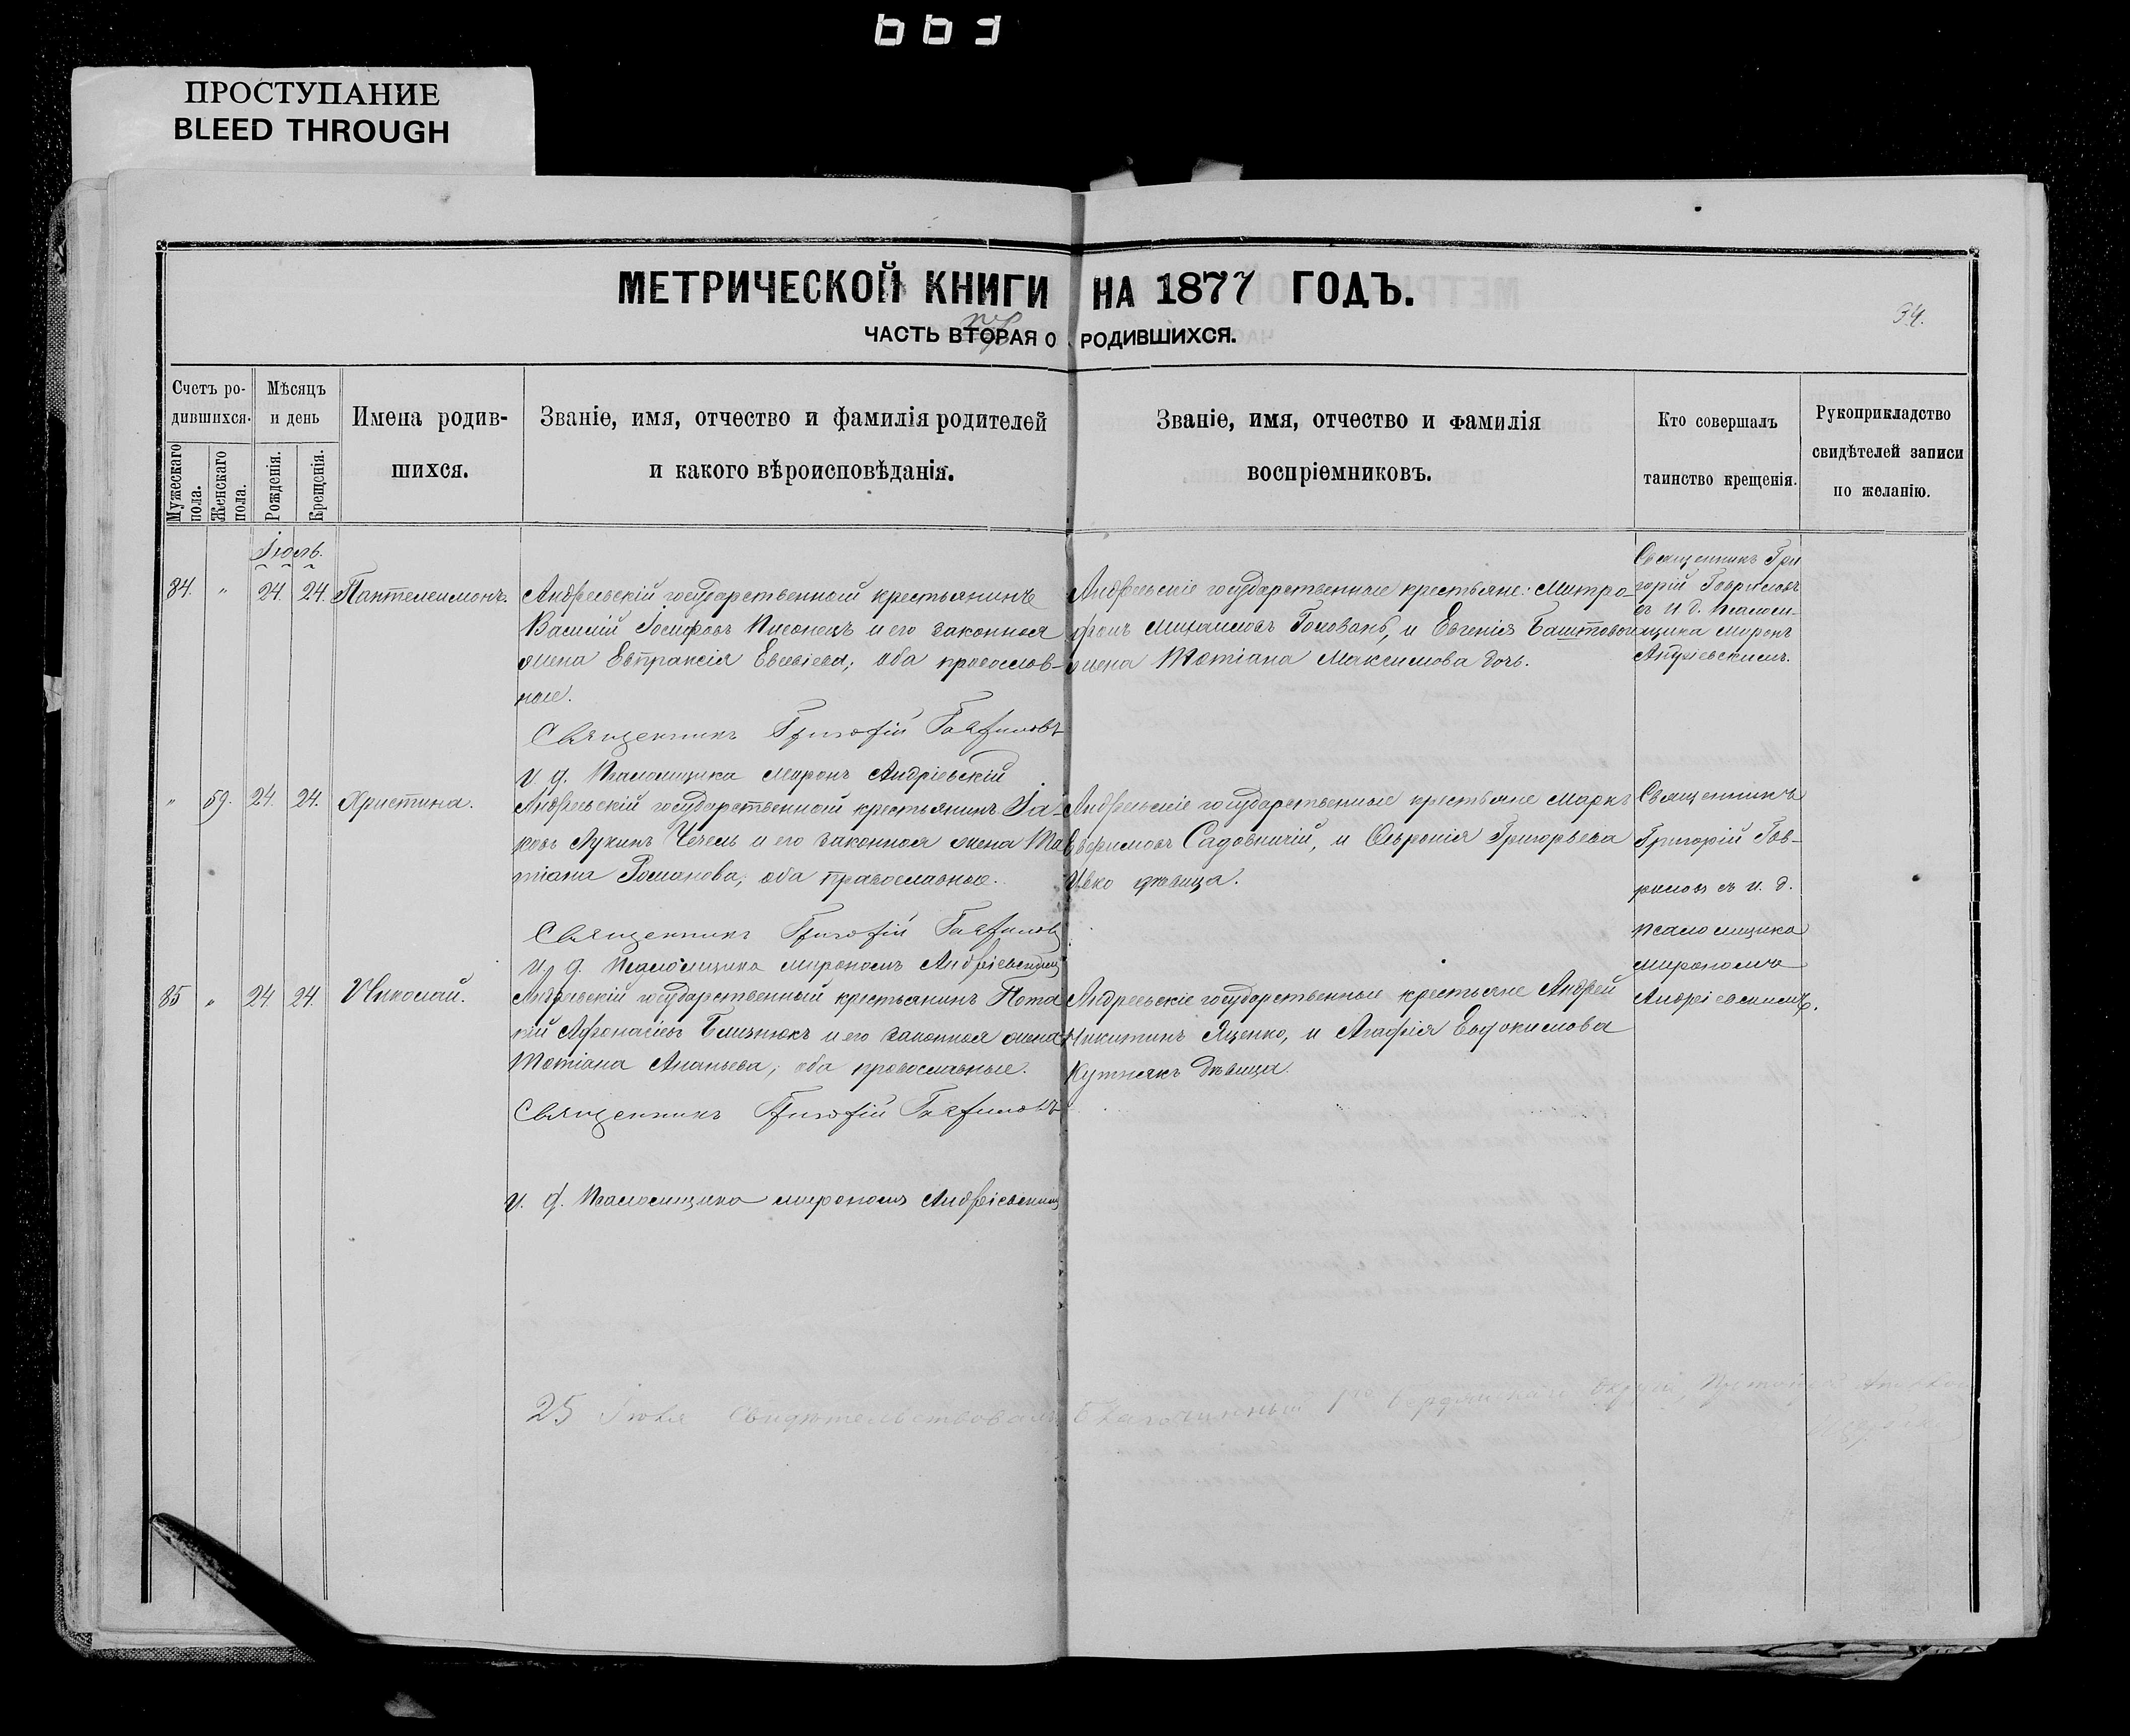 663
ПРОСТУПАНИЕ
BLEED THROUGH
МЕТРИЧЕСКОЙ КНИГИ НА 1877 ГОДЪ.
ЧАСТЬ ВТОРАЯ О РОДИВШИХСЯ.
34.
Счетъ ро-
дившихся.
Мужескаго пола.
Женскаго пола.
Мѣсяцъ
и день
Рожденія.
Крещенія.
Имена родив-
шихся.
Званіе, имя, отчество и фамилія родителей
и какого вѣроисповѣданія.
Званіе, имя, отчество и фамилія
воспріемниковъ.
Кто совершалъ
таинство крещенія.
Рукоприкладство
свидѣтелей записи
по желанію.
Іюль.
84. " 24. 24. Пантелеимонъ.
Андреевскій государственный крестьянинъ
Василій Іосифовъ и его законная
жена Евпраксія Евсевіева; оба православ-
ные.
Священникъ Григорій Гавриловъ
и. д. Псаломщика Миронъ Андріевскій
Андреевскіе государственные крестьяне: Митро-
фанъ Михаиловъ Головань, и Евгенія Баштовой
жена Татіана Максимова дочь.
Священникъ Гри
горій Гавриловъ
съ и д. Псалом-
щика Миронъ
Андріевскимъ.
" 59. 24. 24. Христина.
Андреевскій государственный крестьянинъ Іа-
ковъ Лукинъ Чечель и его законная жена Та
тіана Романова; оба православные.
Священникъ Григорій Гавриловъ
и. д. Псаломщика Мирономъ Андріевскимъ
Андреевскіе государственные крестьяне Маркъ
Садовничій, и Февронія Григорьева
Ивко дѣвица.
Священникъ
Григорій Гав-
риловъ съ и. д.
Псаломщика
Мирономъ
Андріевскимъ.
85 " 24 24. Николай.
Андреевскій государственный крестьянинъ Пота
пій Афанасіевъ Близнюкъ и его законная жена
Татіана Ананьева; оба православные.
Священникъ Григорій Гавриловъ
и. д. Псаломщика Мирономъ Андріевскимъ
Андреевскіе государственные крестьяне Андрей
Никитинъ Яценко, и Агафія Евдокимова
Кутнякъ дѣвица.
25 Іюля Свидѣтельствовалъ Благочинный 1го Бердянскаго округа,